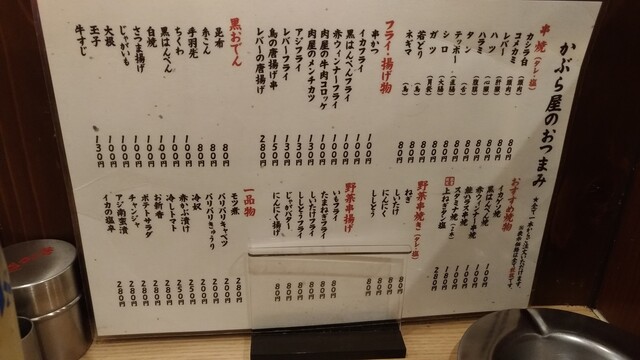 かぶら屋のおつまみ
串焼(タレ・塩)
カシラ白 (頭肉) 80円
コメカミ (頭肉) 80円
レバー (肝臓) 80円
ハツ (心臓) 80円
ハラミ (横隔膜) 80円
タン (舌) 80円
テッポー (直腸) 80円
シロ (大腸) 80円
ガツ (胃袋) 80円
若どり (鳥) 80円
ネギマ (鳥) 80円
フライ・揚げ物
串かつ 100円
イカフライ 100円
黒はんぺんフライ 100円
赤ウィンナーフライ 100円
肉屋の牛肉コロッケ 100円
肉屋のメンチカツ 130円
アジフライ 130円
レバーフライ 130円
鳥の唐揚げ串 150円
レバーの唐揚げ 280円
黒おでん
昆布 80円
糸こん 80円
手羽先 100円
ちくわ 100円
黒はんぺん 100円
白焼 100円
さつま揚げ 100円
じゃがいも 100円
大根 100円
玉子 100円
牛すじ 130円
おすすめ焼物
イカゲソ焼 100円
黒はんぺん焼 100円
赤ウィンナー串焼
鮭ハラス串焼
スタミナ焼
上ねぎタン塩 280円
野菜串焼き(タレ・塩)
ねぎ 80円
しいたけ 80円
にんにく 80円
ししとう 80円
野菜串揚げ
いもフライ 80円
たまねぎフライ 80円
しいたけフライ 80円
ししとうフライ 80円
じゃがバター 80円
にんにく揚げ 80円
一品物
モツ煮 280円
バリバリキャベツ
バリバリきゅうり
冷奴
赤かぶ漬け
冷しトマト
お新香
ポテトサラダ
チャンジャ
アジ南蛮漬 280円
イカの塩辛 280円